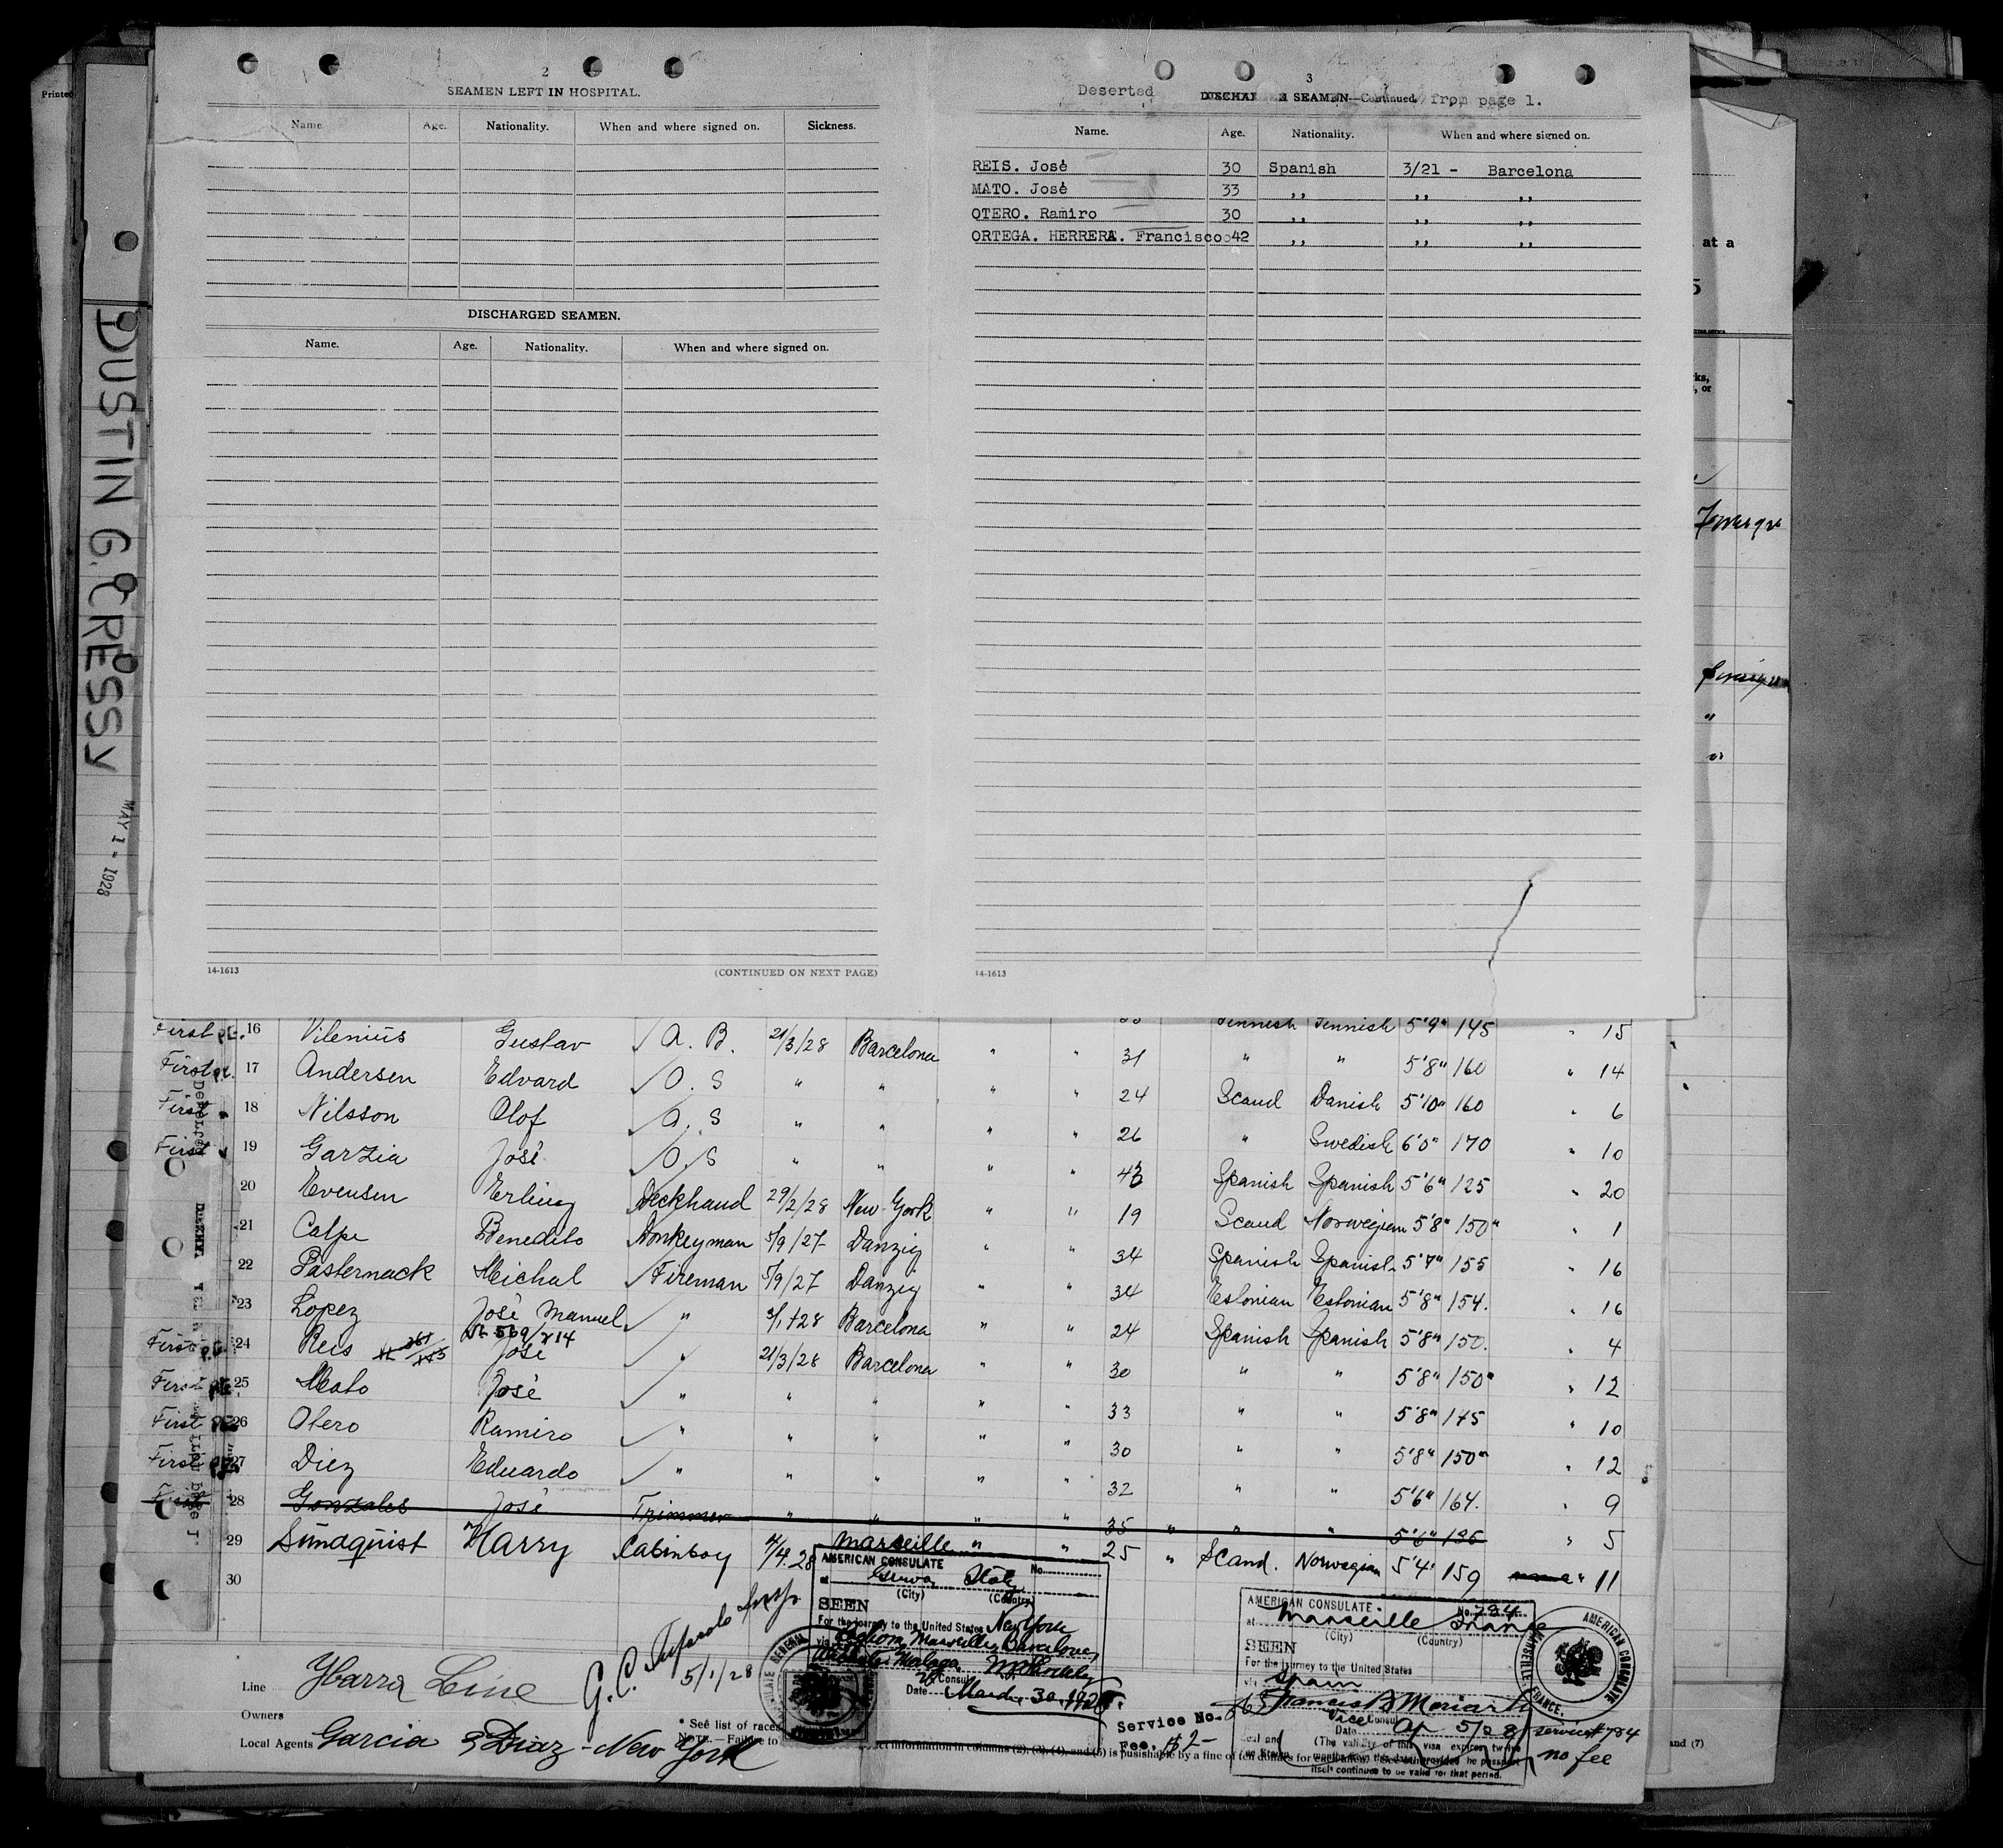 Printed
2
SEAMEN LEFT IN HOSPITAL.
Name. Age. Nationality. When and where signed on. Sickness.
DISCHARGED SEAMEN.
Name. Age. Nationality. When and where signed on.
14-1613 (CONTINUED ON NEXT PAGE)
3
Deserted SEAMEN—Continued. from page 1.
Name. Age. Nationality. When and where signed on.
REIS. José 30 Spanish 3/21 - Barcelona
MATO. José 33 ,, ,, ,,
OTERO. Ramiro 30 ,, ,, ,,
ORTEGA. HERRERA. Francisco 42 ,, ,, ,,
14-1613
DUSTIN G. CRESSY
MAY 1 - 1928
at a
5
ks,
, or
First 16 Vilenius Gustav A. B. 21/3/28 Barcelona " " 5'9" 145 " 15
First 17 Andersen Edvard O. S " " " " 31 " " 5'8" 160 " 14
First 18 Nilsson Olof O. S " " " " 24 Scand Danish 5'10" 160 " 6
First 19 Garzia José O. S " " " " 26 " Swedish 6'0" 170 " 10
20 Evensen Erling Deckhand 29/2/28 New York " " 43 Spanish Spanish 5'6" 125 " 20
21 Calpe Benedito Donkeyman 5/9/27 Danzig " " 19 Scand Norwegian 5'8" 150" " 1
22 Pasternack Michal Fireman 5/9/27 Danzig " " 34 Spanish Spanish 5'7" 155 " 16
23 Lopez José Manuel " Barcelona " " 34 Estonian Estonian 5'8" 154. " 16
First 24 Reis José " 21/3/28 Barcelona " " 24 Spanish Spanish 5'8" 150. " 4
First 25 Mato José " " " " " 30 " " 5'8" 150" " 12
First 26 Otero Ramiro " " " " " 33 " " 5'8" 145 " 10
First 27 Diez Eduardo " " " " " 30 " " 5'8" 150" " 12
First 28 Gonzales José Trimmer " " " " 32 " " 5'6" 164. " 9
35 " " " 5'6" 136 " 5
29 Sundquist Harry Cabinboy 4/4.28 Marseille " " 25 " Scand. Norwegian 5'4" 159 " 11
30
AMERICAN CONSULATE No.
at Genoa Italy
(City) (Country)
SEEN
For the journey to the United States New York
via Leghorn, Marseille, Barcelona,
Malaga,
Consul
Date March 30, 1928.
Service No.
Fee. $2-
AMERICAN CONSULATE No. 784
at Marseille France
(City) (Country)
SEEN
For the journey to the United States
via Spain
Francis B Moriarty
Vice Consul
Date Ap 5/28
(The validity of this visa expires twelve
itself continues to be valid for that period.
service # 784
no fee
AMERICAN CONSULATE
MARSEILLE FRANCE.
Line Ybarra Line
G. C.
5/1/28
Owners
Local Agents Garcia & Diaz - New York
* See list of races
NOTE.—Failure to
information in columns (2), (3), (4), and (5) is punishable by a fine of ten dollars for
and (7)